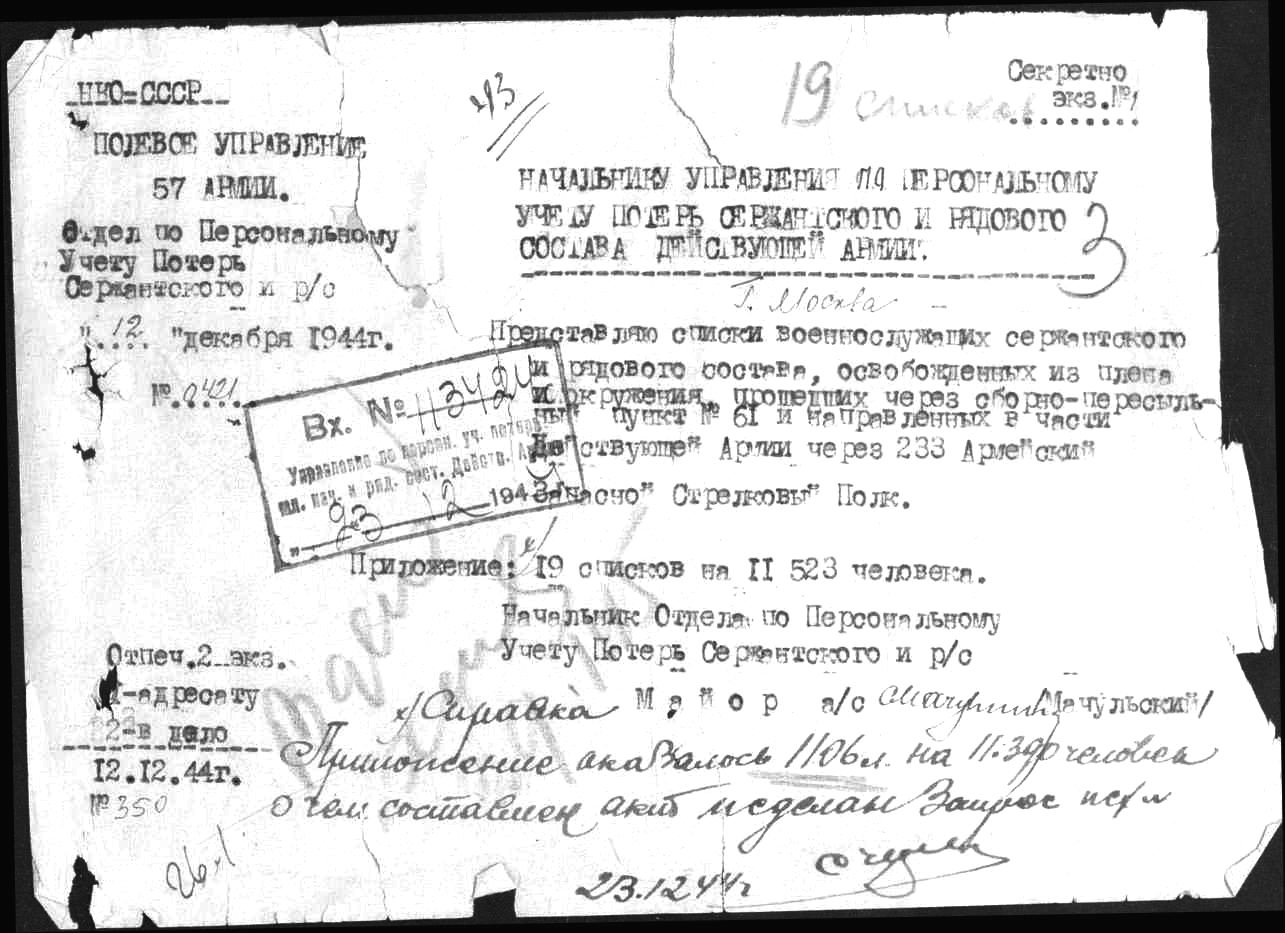 НКО-СССР
ПОЛЕВОЕ УПРАВЛЕНИЕ
57 АРМИИ.
Отдел по Персональному
Учету Потерь
Сержантского и р/с
"12 "декабря 1944г.
№ 0421
293
19 списков
Секретно
экз.№1
НАЧАЛЬНИКУ УПРАВЛЕНИЯ ПО ПЕРСОНАЛЬНОМУ
УЧЕТУ ПОТЕРЬ СЕРЖАНТСКОГО И РЯДОВОГО
СОСТАВА ДЕЙСТВУЮЩЕЙ АРМИИ.
3
Г. Москва
Представляю списки военнослужащих сержантского
и рядового состава, освобожденных из плена
и окружения, прошедших через сборно-пересыль-
ный пункт № 61 и направленных в части
Действующей Армии через 233 Армейский
Запасной Стрелковый Полк.
Вх. № 113424
Управление по персон. уч. потерь
мл. нач. и ряд. сост. Действ. Армии
"23" 12 194
Приложение: 19 списков на II 523 человека.
Начальник Отдела по Персональному
Учету Потерь Сержантского и р/с
Майор а/с /Мачульский/
Отпеч.2 экз.
1-адресату
2-в дело
12.12.44г.
№ 350
х/ Справка
Приложение оказалось 1106 л. на человек
о чем составлен акт и сделан Запрос
23.12 44г
26.1